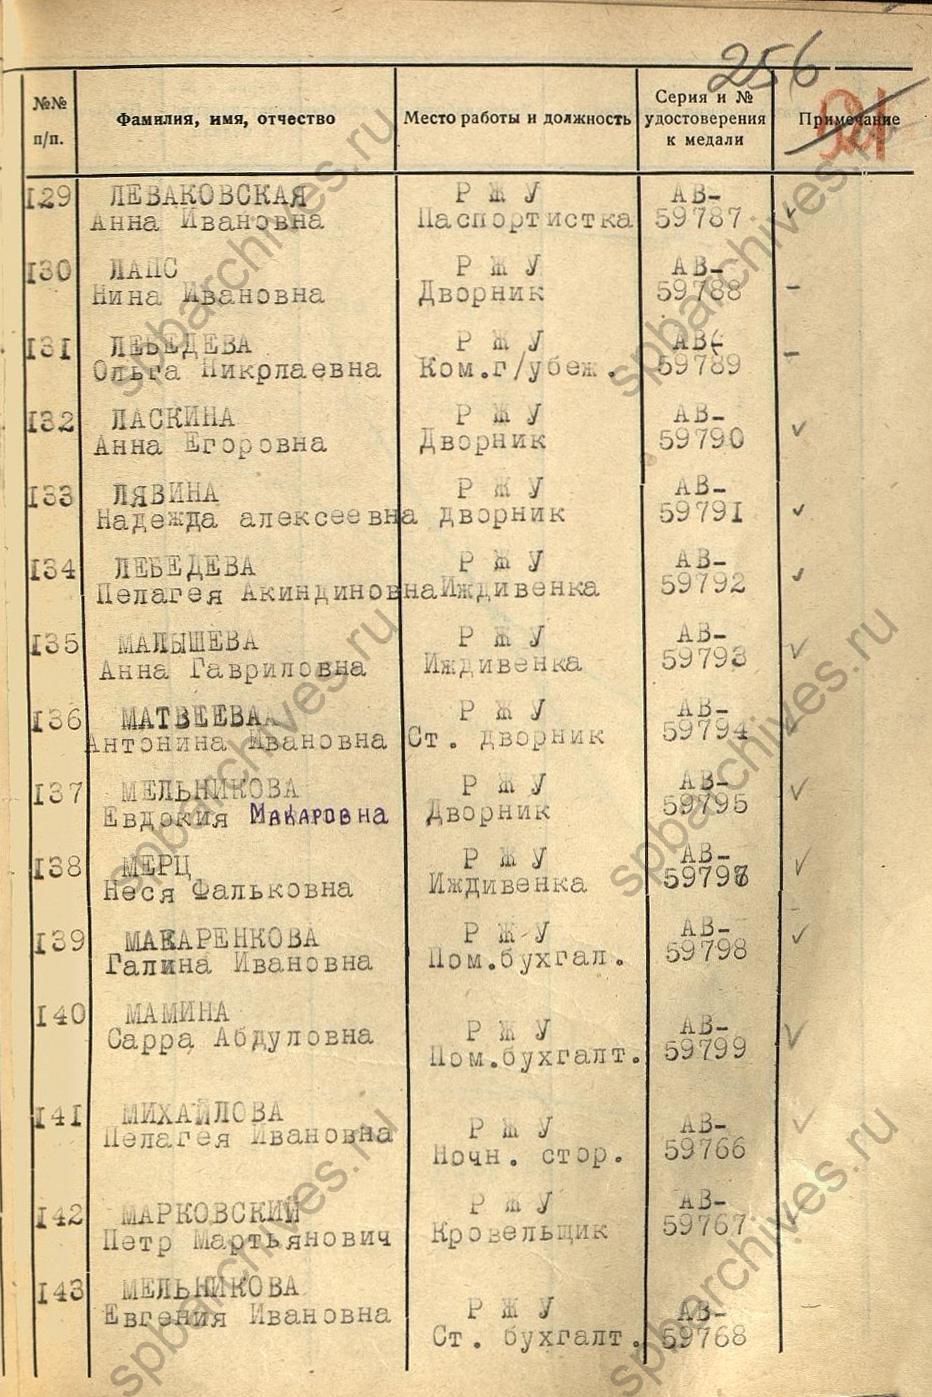 256
521
№№ п/п. Фамилия, имя, отчество Место работы и должность Серия и № удостоверения к медали Примечание
I29 ЛЕВАКОВСКАЯ Р Ж У АВ-
Анна Ивановна Паспортистка 59787 ✓
I30 ЛАПС Р Ж У АВ-
Нина Ивановна Дворник 59788 –
I31 ЛЕБЕДЕВА Р Ж У АВ(
Ольга Никрлаевна Ком.г/убеж. 59789 –
I32 ЛАСКИНА Р Ж У АВ-
Анна Егоровна Дворник 59790 ✓
I33 ЛЯВИНА Р Ж У АВ-
Надежда алексеевна дворник 5979I ✓
I34 ЛЕБЕДЕВА Р Ж У АВ-
Пелагея Акиндиновна Иждивенка 59792 ✓
I35 МАЛЫШЕВА Р Ж У АВ-
Анна Гавриловна Иждивенка 59793 ✓
I36 МАТВЕЕВА Р Ж У АВ-
Антонина Ивановна Ст. дворник 59794 ✓
I37 МЕЛЬНИКОВА Р Ж У АВ-
Евдокия Макаровна Дворник 59795 ✓
I38 МЕРЦ Р Ж У АВ-
Неся Фальковна Иждивенка ✓
I39 МАКАРЕНКОВА Р Ж У АВ-
Галина Ивановна Пом.бухгал. 59798 ✓
I40 МАМИНА Р Ж У АВ-
Сарра Абдуловна Пом.бухгалт. 59799 ✓
I4I МИХАЙЛОВА Р Ж У АВ-
Пелагея Ивановна Ночн. стор. 59766 ✓
I42 МАРКОВСКИЙ Р Ж У АВ-
Петр Мартьянович Кровельщик 59767 ✓
I43 МЕЛЬНИКОВА Р Ж У АВ-
Евгения Ивановна Ст. бухгалт. 59768 –
spbarchives.ru
spbarchives.ru
spbarchives.ru
spbarchives.ru
spbarchives.ru
spbarchives.ru